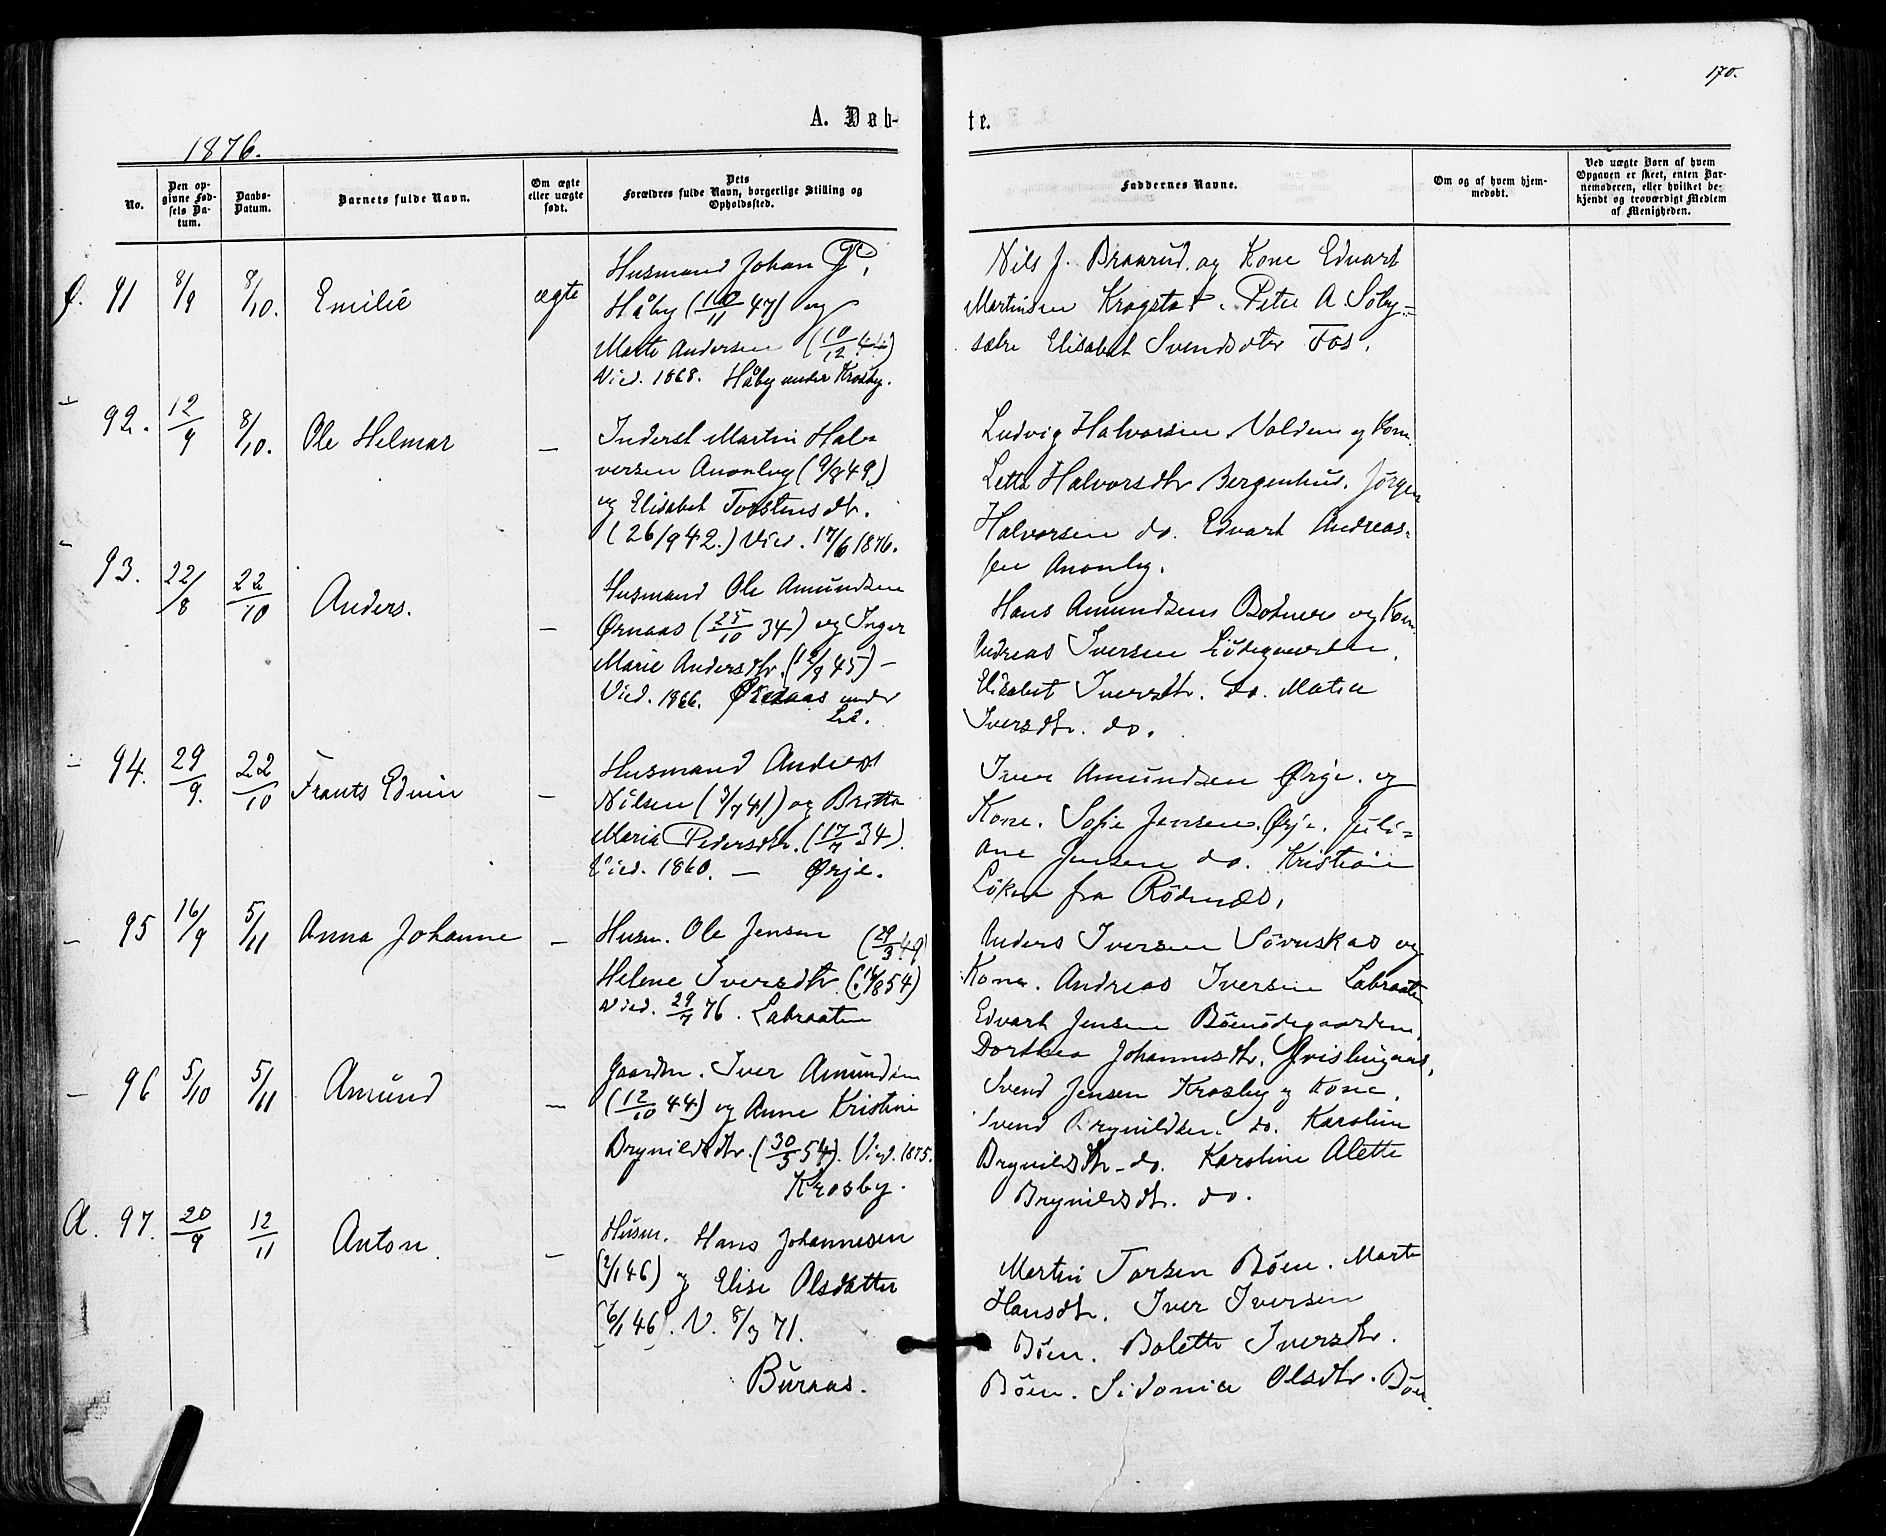 170.
A. Døb-
te.
1876.
No.
Den op-
givne Fød-
sels Da-
tum.
Daabs-
Datum.
Barnets fulde Navn.
Om ægte
eller uægte
født.
Dets
Forældres fulde Navn, borgerlige Stilling og
Opholdssted.
Faddernes Navne.
Om og af hvem hjem-
medøbt.
Ved uægte Børn af hvem
Opgaven er skeet, enten Bar-
nemoderen, eller hvilket be-
kjendt og troværdigt Medlem
af Menigheden.
Ø. 91 8/9 8/10. Emilie ægte
Husmand Johan P.
Håby (10/11 47) og
Marte Andersen (10/12 44)
Vied. 1868. Håby under Krosby.
Nils J. Braarud. og Kone Edvart
Martinsen Krogstad. Peter A. Søby-
sætre Elisabet Svendsdter Fos.
- 92. 12/9 8/10. Ole Helmar -
Inderst Martin Hal-
versen Anonby (9/8 49)
og Elisabet Torstensdtr.
(26/9 42.) Vied. 17/6 1876.
Ludvig Halvorsen Volden og Kone
Lette Halvorsdtr Bergenhus. Jørgen
Halvorsen do. Edvart Andreas-
sen Anonby.
- 93. 22/8 22/10 Anders. -
Husmand Ole Amundsen
Ørnaas (25/10 34) og Inger
Marie Andersdtr. (12/9 45) -
Vied. 1866. Ørnaas under
Li.
Hans Amundsens Bodner og Kone
Andreas Iversen
Elisabet Iversdtr. do. Matea
Iversdtr. do.
- 94. 29/9. 22/10 Frants Edvin -
Husmand Anders
Nilsen (3/7 41) og Britta
Maria Pedersdtr. (17/7 34).
Vied. 1860. - Ørje.
Iver Amundsen Ørje. og
Kone. Sofie Jensen. Ørje. Juli-
ane Jensen do. Kristian
Løken fra Rødenæs.
- 95 16/9 5/11 Anna Johanne -
Husm. Ole Jensen (29/3 49)
Helene Iversdtr. (16/8 54)
Vied. 29/7 76. Labraaten
Anders Iversen og
Kone. Andreas Iversen Labraaten
Edvart Jensen Bøenødegaarden.
Dorthea Johannesdtr.
- 96 5/10 5/11 Amund -
Gaardm. Iver Amundsen
(12/10 44) og Anne Kristine
Brynildsdtr. (30/5 54). Vied. 1875.
Krosby.
Svend Jensen Krosby og Kone.
Svend Brynildsen. do. Karoline
Brynildsdtr - do. Karoline Alette
Brynildsdtr. do.
A. 97. 20/9 12/11 Anton. -
Husm. Hans Johannesen
(2/1 46) og Elise Olsdatter
(6/1 46). V. 8/3 71.
Buraas.
Martin Torsen Bøen. Marte
Hansdtr. Iver Iversen
Bøen. Bolette Iversdtr.
Bøen. Sidonia Olsdtr. Bøen.